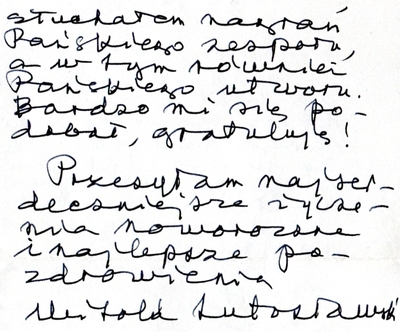 słuchałem nagrań
Pańskiego zespołu,
a w tym również
Pańskiego utworu.
Bardzo mi się po-
dobał, gratuluję!
Przesyłam najser-
deczniejsze życze-
nia noworoczne
i najlepsze po-
zdrowienia
Witold Lutosławski